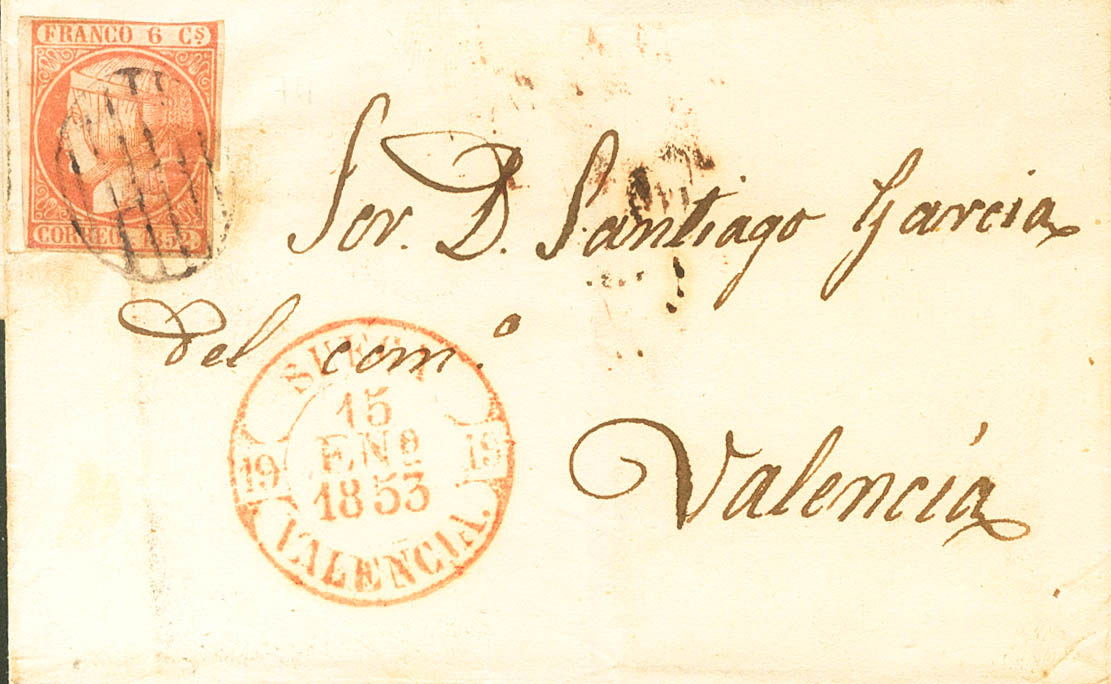 FRANCO 6 Cs
CORREOS 1852
Sor. D. Santiago Garcia
del com.o
Valencia
SUECA
15
ENº
1853
19 19
VALENCIA.